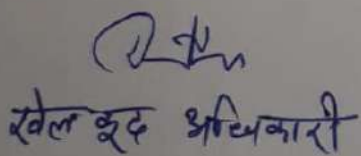 खेल कूद अधिकारी